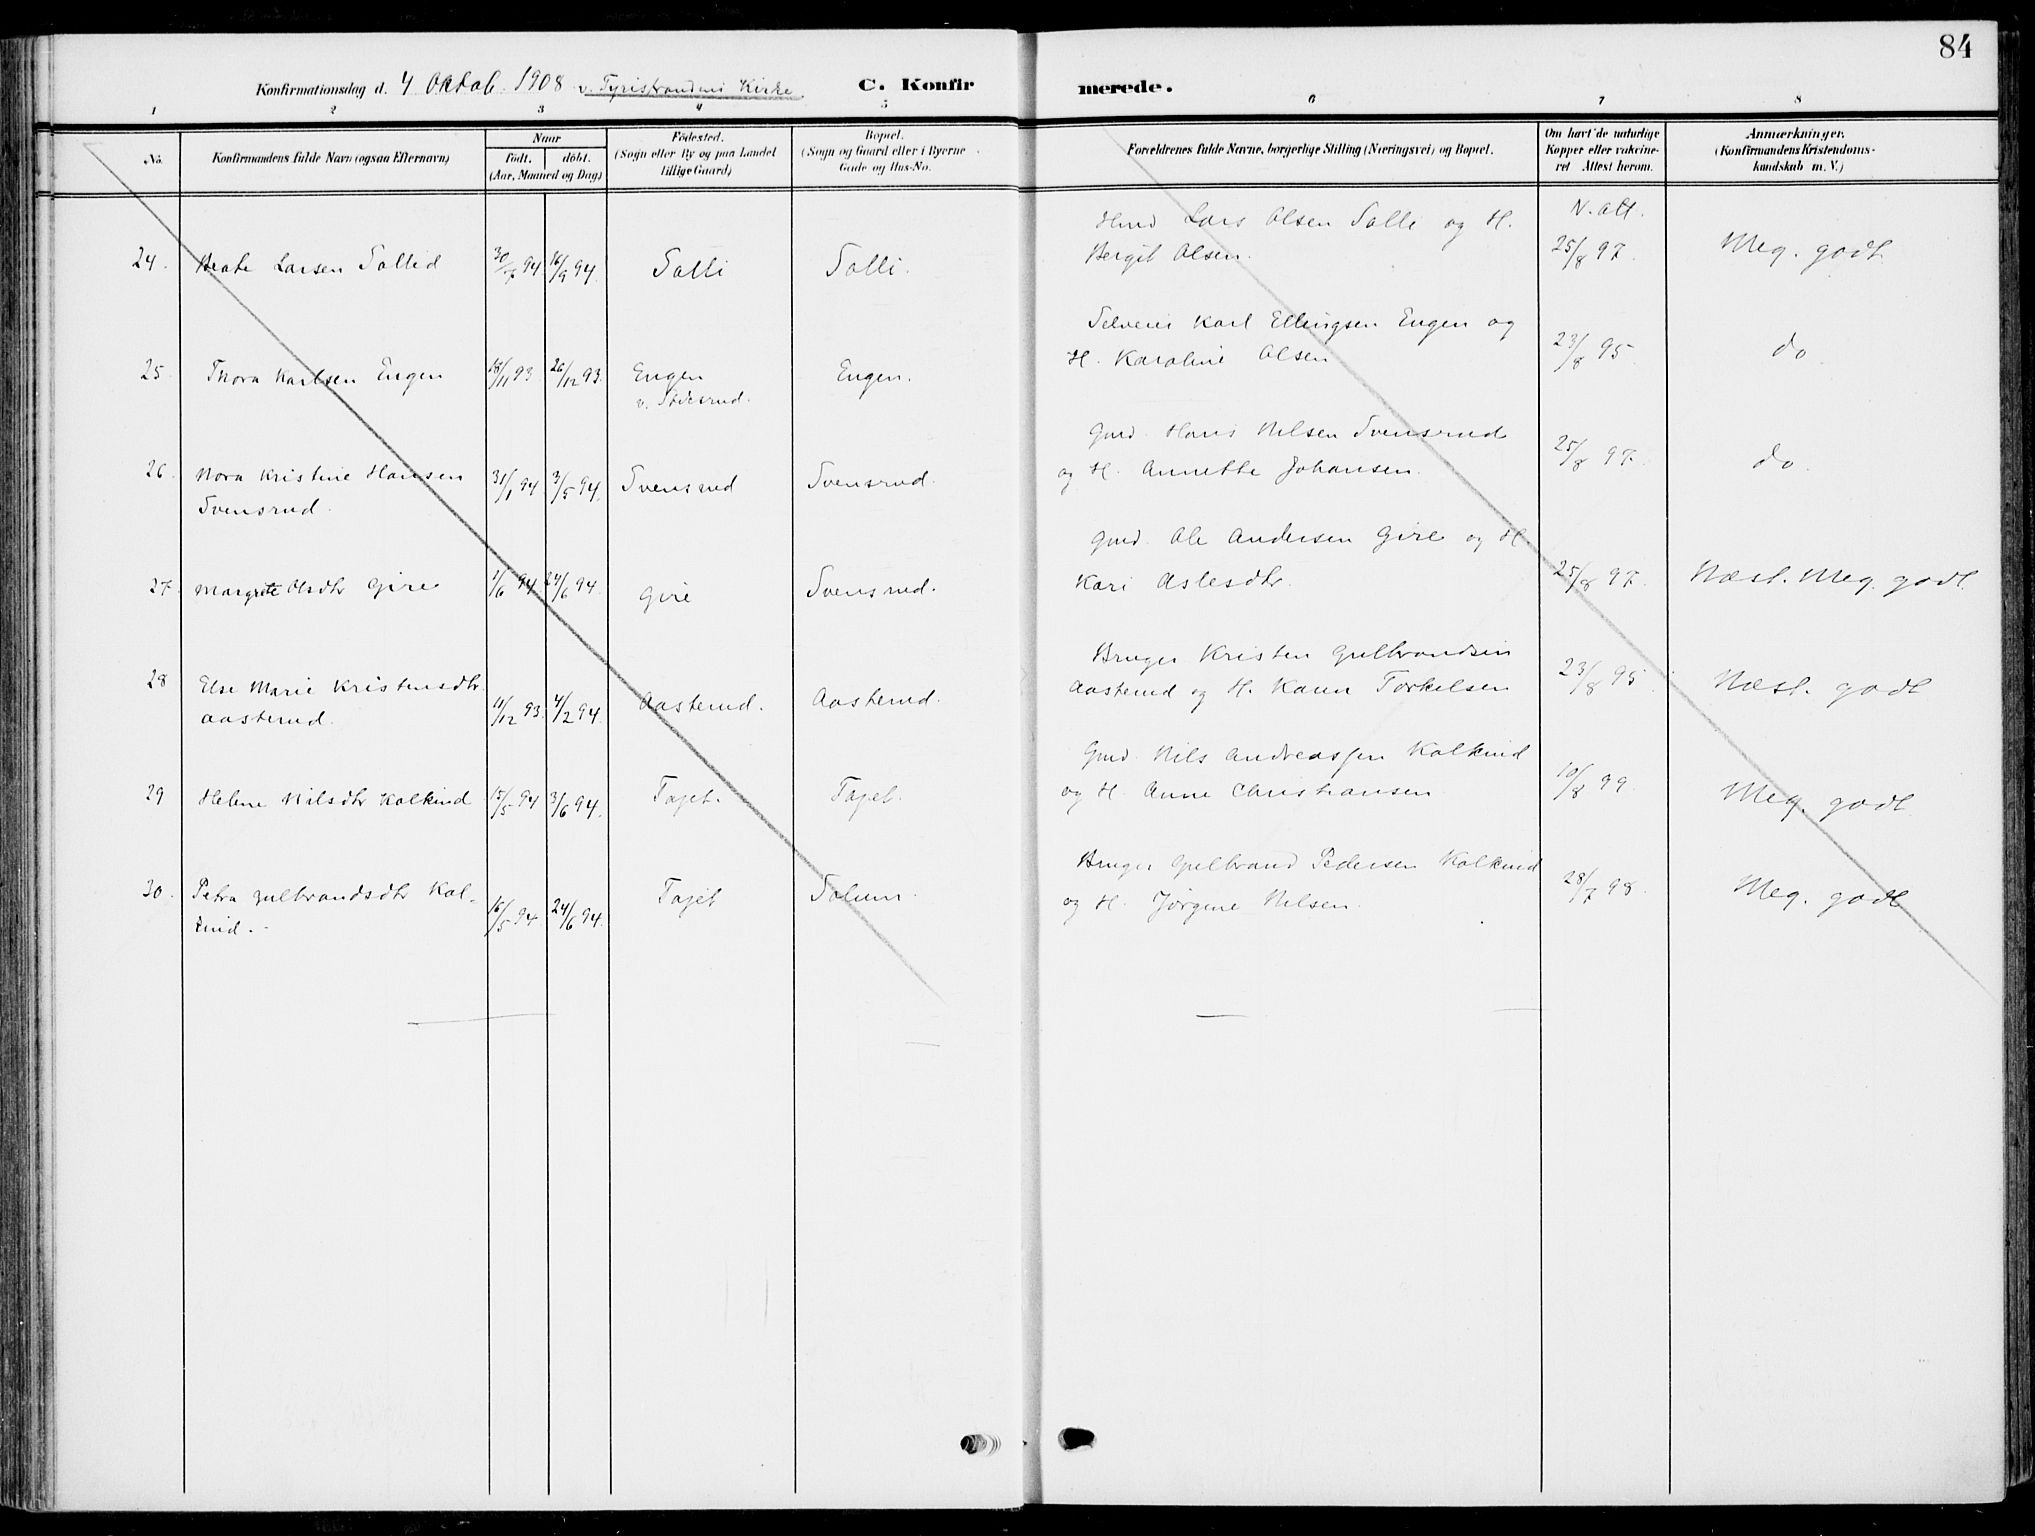 84
Konfirmationsdag d. 4 Oktob. 1908 v. Tyristrandens Kirke C. Konfirmerede.
1 2 3 4 5 6 7 8
No.
Konfirmandens fulde Navn (ogsaa Efternavn)
Naar
født. døbt.
(Aar, Maaned og Dag)
Fødested.
(Sogn eller By og paa Landet
tillige Gaard)
Bopæl.
(Sogn og Gaard eller i Byerne
Gade og Hus-No.
Forældrenes fulde Navne, borgerlige Stilling (Næringsvei) og Bopæl.
Om havt de naturlige
Kopper eller vakcine-
ret Attest herom.
Anmærkninger.
(Konfirmandens Kristendoms-
kundskab m. V.)
Hmd Lars Olsen Solli og H. V. att.
24. Beate Larsen Sollid 30/7 94 16/9 94. Solli Solli. Bergit Olsen. 25/8 97. Meg. godt
Selveier Karl Ellingsen Engen og
25. Thora Karlsen Engen 18/11 93. 26/12 93. Engen Engen. H. Karoline Olsen 23/8 95. do
v. Stdesrud.
Gmd. Hans Nilsen Svensrud
26. Nora Kristine Hansen 31/1 94. 3/5 94. Svensrud Svensrud. og H. Annette Johansen. 25/8 97. do.
Svensrud.
Gmd. Ole Andersen Gire og H
27. Margrete Olsdtr Gire 1/6 94 24/6 94. Gire Svensrud. Kari Aslesdtr. 25/8 97. Næst. Meg. godt.
Bruger Kristen Gulbrandsen
28 Else Marie Kristensdtr. 11/12 93. 4/2 94. Aasterud. Aasterud. Aasterud og H. Karen Torkelsen 23/8 95. Næst. godt
Aasterud.
Gmd. Nils Andreassen Kolkind
29 Helene Nilsdtr Kolkind 15/5 94 3/6 94. Fajet. Fajet. og H. Anne Christiansen. 10/8 99. Meg. godt
Bruger Gulbrand Pedersen Kolkind
30. Petra Gulbrandsdtr Kol- 16/5 94. 24/6 94. Fajet Solum. og H. Jørgine Nilsen. 28/7 98. Meg. godt
kind.